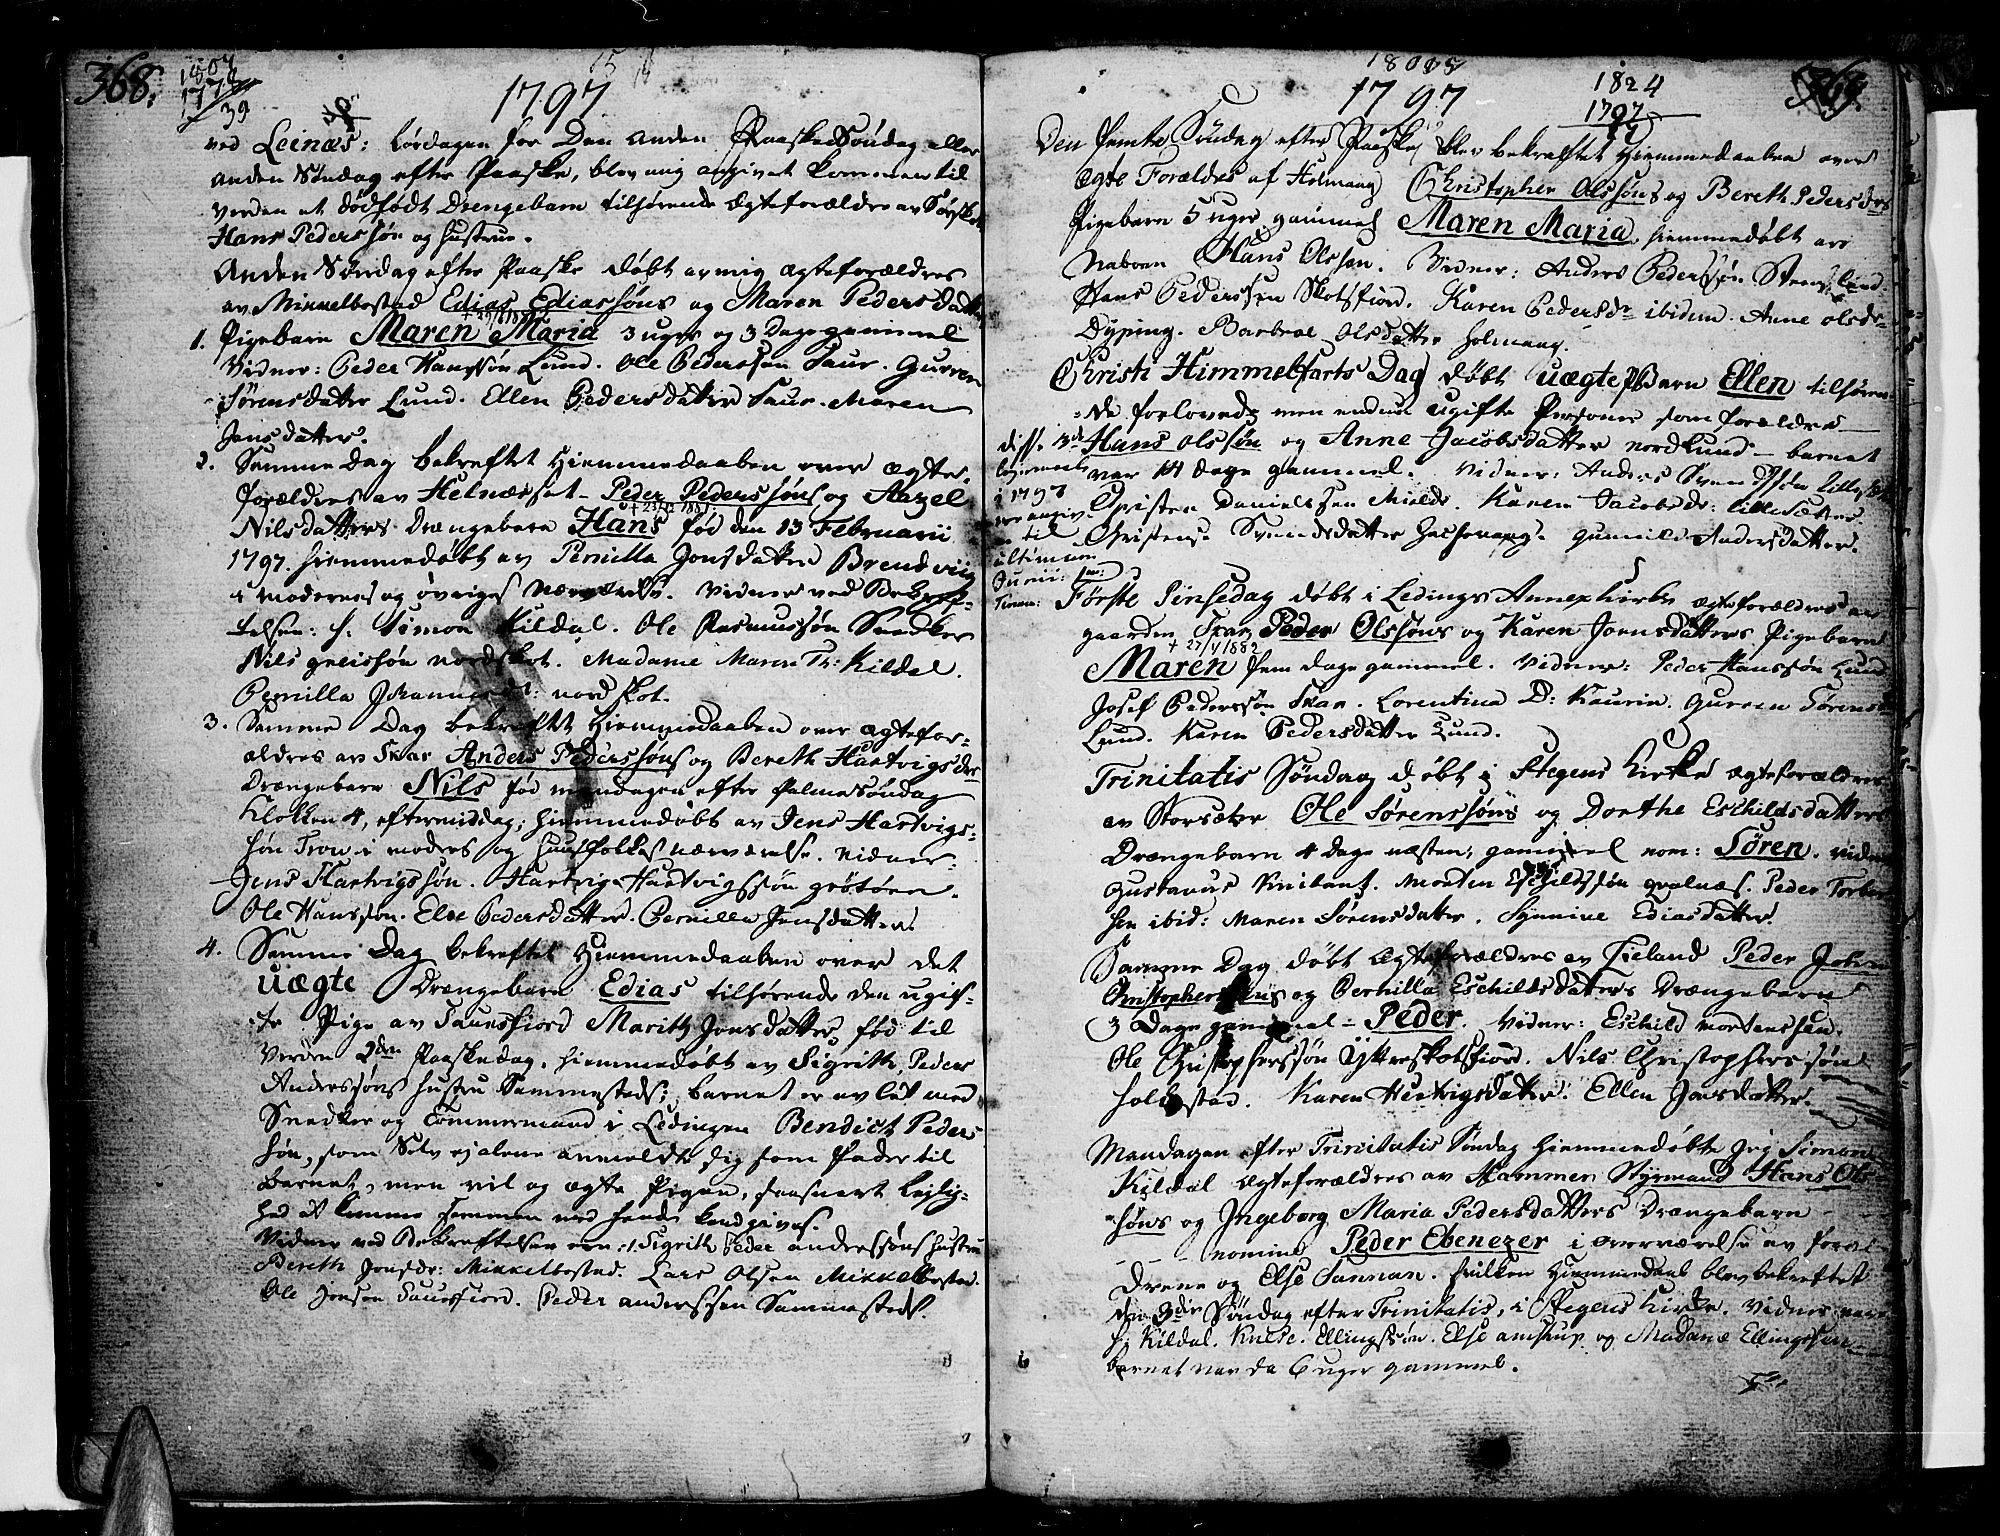 368.
1807
1778
39
15
1797
ved Leinæs: Lørdagen for Den anden Paaske Søndag eller
anden Søndag efter Paaske, blev mig angivet kommen til
Verden et dødfødt Drengebarn tilhørende Ægteforældre av
Hans Pederssøn og Hustrue.
Anden Søndag efter Paaske døbt av mig Ægteforældres
av Mikkelbostad Edias Ediassøns og Maren Pedersdatters
1. Pigebarn Maren Maria 3 uger og 3 Dage gammel
Vidner: Peder Hanssøn Lund. Ole Pederssøn Saur. Gurren
Sørensdatter Lund. Ellen Pedersdatter Saur. Maren
Jensdatter.
2. Samme Dag bekreftet Hiemmedaaben over Ægte-
forældres av Helnæsset Peder Pederssøns og Aazel
+ 23/12 1881.
Nilsdatters Drængebarn Hans fød den 13 Februarii
1797. hiemmedøbt av Pernilla Jonsdatter Brendviig
i moderens og øvriges Nærværelse. Vidner ved Bekref-
telsen: H. Simon Kildal. Ole Rasmussøn Snedker
Nils Greissøn Nordskot. Madame Maren Kildal.
Pernilla Johannesd: Nordskot.
3. Samme Dag bekreftet Hiemmedaaben over Ægtefor-
ældres av Skar Anders Pederssøns og Bereth Hartvigsdrs
Drængebarn Nils fød mandagen efter Palmesøndag
Klokken 4, eftermiddag; hiemmedøbt av Jens Hartvigs-
søn Tron i moders og huusfolkes nærværelse. Vidner
Jens Hartvigssøn. Hartvig Hartvigssøn Grøtøen.
Ole Hanssøn. Else Pedersdatter. Pernilla Jonsdatter
4. Samme Dag bekreftet Hiemmedaaben over det
uægte Drængebarn Edias tilhørende den ugif-
te Pige av Saursfiord Marith Jonsdatter fød til
Verden 2den Paaskedag, hiemmedøbt av Sigrith, Peder
Anderssøns Hustru Sammesteds; barnet er avlet med
Snedker og Tømmermand i Ledingen Bendict Peders
søn, som Selv anmeldte sig som Fader til
Barnet, men vil og ægte Pigen, saasnart Leilig-
hed at komme sammen med hende kand gives.
Vidner ved Bekreftelsen ere: 1. Sigrith Peder anderssøns Hustru
Bereth Jonsdr: Mikkelbostad. Lars Olsen Mikkelbostad.
Ole Jonsen Saursfiord. Peder anderssen Sammesteds.
369
1797
1824
1797
Den femte Søndag efter Paaske blev bekreftet Hiemmedaaben over
Ægte Forældres af Holmaag Christopher Olssøns og Bereth Pedersdrs
Pigebarn 5 uger gammel Maren Maria, hiemmedøbt av
Naboen Hans Olssen. Vidner: Anders Pederssøn Stensland
Hans Pederssen Skotsfiord. Karen Pedersdr ibidem. Anne olsdr
Dyping. Barbroe Olsdatter Holmaag.
Christi Himmelfarts Dag døbt uægte Barn Ellen tilhøren-
de forlovede men endnu ugifte Personer som forældre
Hans Olssøn og Anne Jacobsdatter Nordlund - barnet
var 14 dage gammel. Vidner: Anders
Christen Danielssen Karen Jacobsdr: Lillesæter
Svendsdatter Gunnild Andersdatter.
diss. 3de
i 1797
til
ultimum
Junii:
Første Pinsedag døbt i Ledings Annexkirke ægteforældres av
gaarden Skar Peder Olssøns og Karen Joensdatters Pigebarn
+ 27/4 1882
Maren fem dage gammel. Vidner: Peder Hanssøn Lund
Josef Pederssøn Skar. Lorentina D: Kaurin. Gurren Sørensdr
Lund. Karen Pedersdatter Lund.
Trinitatis Søndag døbt i Stegens Kirke ægteforældres
av Storsæter Ole Sørenssøns og Dorthe Eschildsdatters
Drængebarn 4 dage næsten; gammel nom: Søren. Vidner
Gustavus Morten Eschildssøn Qvalnæs. Peder Torber
sen ibid: Maren Sørensdatter. Synnive Ediasdatter.
Samme Dag døbt Ægteforældres av Tieland Peder Johan
Christopherssøns og Pernilla Eschildsdatters Drængebarn
3 Dage gammel - Peder. Vidner: Eschild Mortenssen.
Ole Christopherssøn Ytterskotsfiord. Nils Christopherssøn
Holkestad. Karen Hertvigsdatter. Ellen Jonsdatter.
Mandagen efter Trinitatis Søndag hiemmedøbte jeg Simon
Kildal Ægteforældres av Hammer Styrmand Hans Ols-
søns og Ingeborg Maria Pedersdatters Drængebarn
nomine Peder Ebenezer i overværelse av foræl-
drene og Else Sannan. Hvilken Hiemmedaab blev bekreftet
den 3die Søndag efter Trinitatis, i Stegens Kirke. Vidner vare
H. Kildal. Ellingssøn. Else amstrup og Madame Ellingssøn
barnet var da 6 uger gammel.